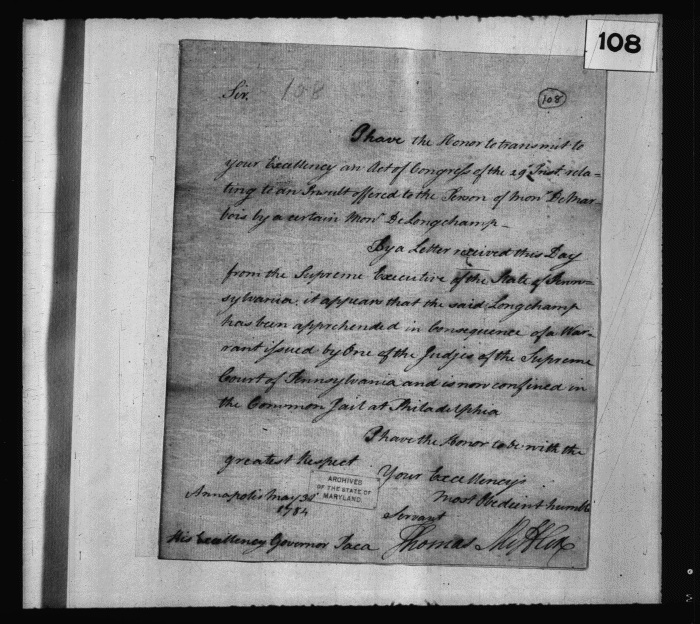 108
108
Sir.
108
I have the Honor to transmit to
your Excellency an Act of Congress of the 29th Inst. rela=
ting to an Insult offered to the Person of Monr. De Mar
bois by a certain Monr. De Longchamp_
By a Letter received this Day
from the Supreme Executive of the State of Penn=
sylvania, it appears that the said Longchamp
has been apprehended in Consequence of a War=
rant issued by One of the Judges of the Supreme
Court of Pennsylvania and is now confined in
the Common Jail at Philadelphia
I have the Honor to be with the
greatest Respect
Your Excellency's
Most Obedient humble
Servant
Thomas Mifflin
ARCHIVES
OF THE STATE OF
MARYLAND.
Annapolis May
1784
His Excellency Governor Paca